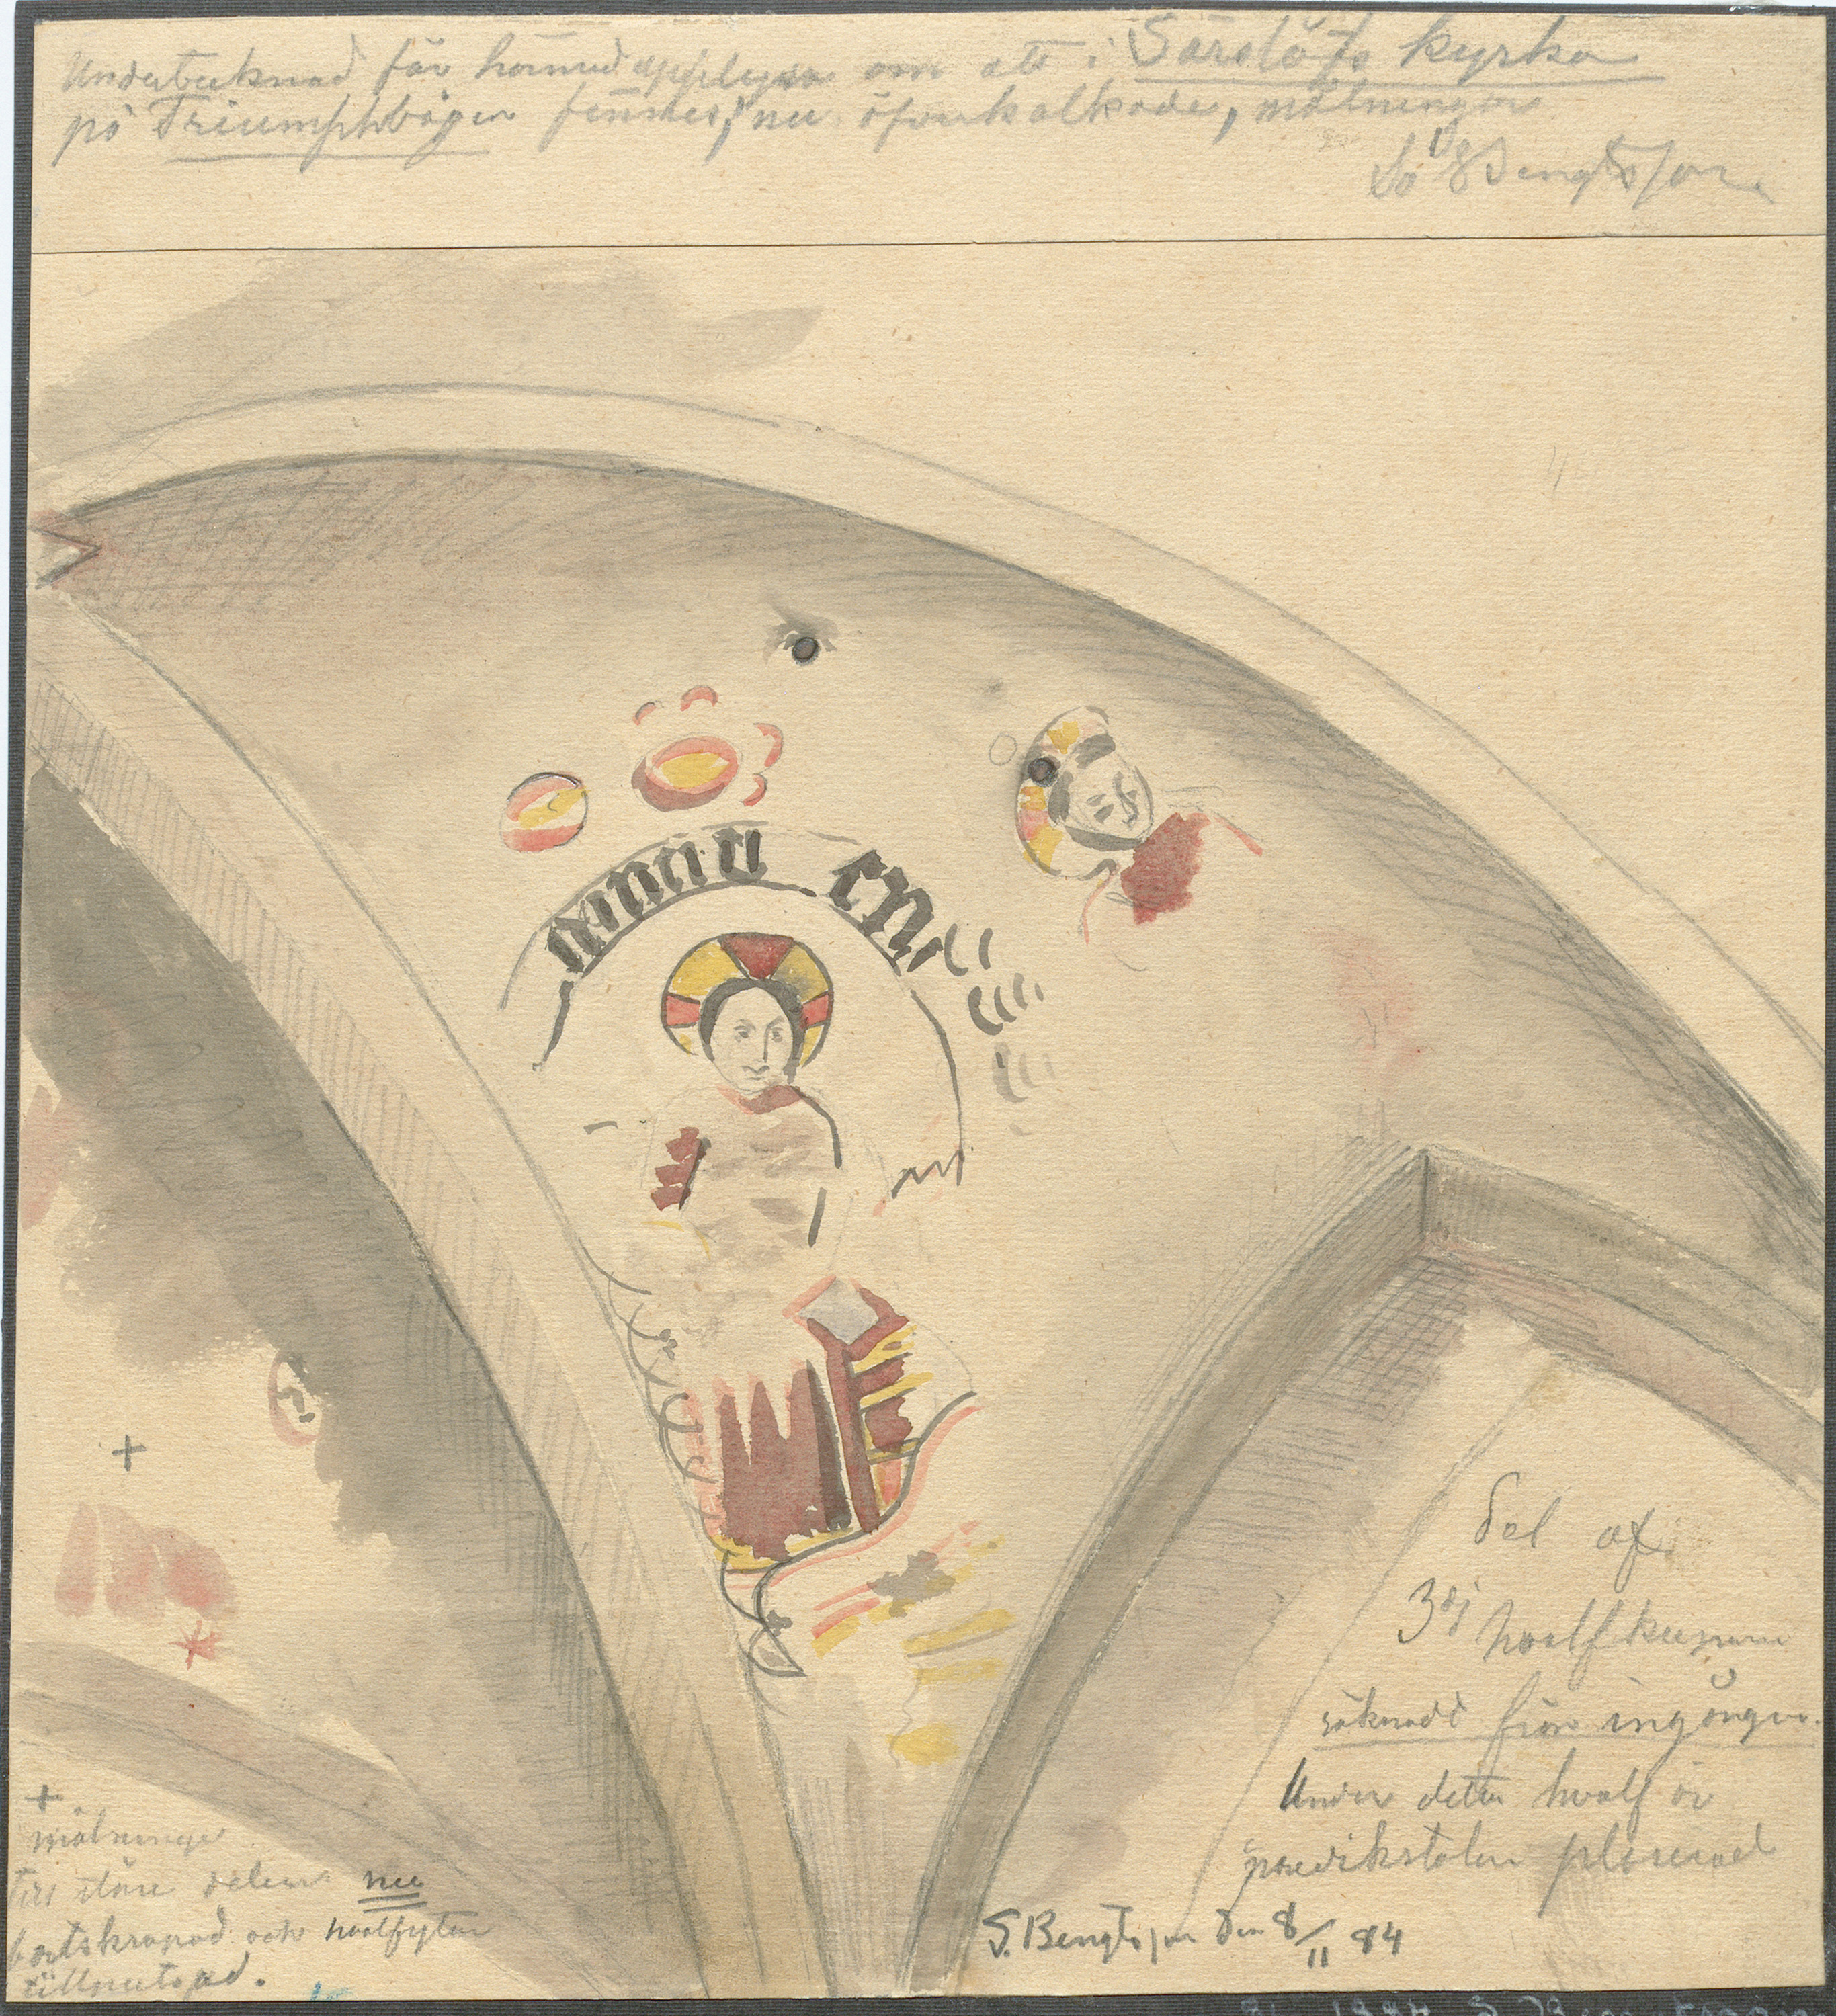 Undertecknad får härmed upplysa om att i Särslöfs kyrka
på Triumphbågen finnes, nu öfverkalkade, målningar
S. Bengtsson
del af
3dj hvalfkupan
räknadt från ingången.
Under detta hvalf är
predikstolen placerad
S. Bengtsson den 8/11 84
+
+
målningen
till större delen nu
bortskrapad och hvalfytan
tillputsad.